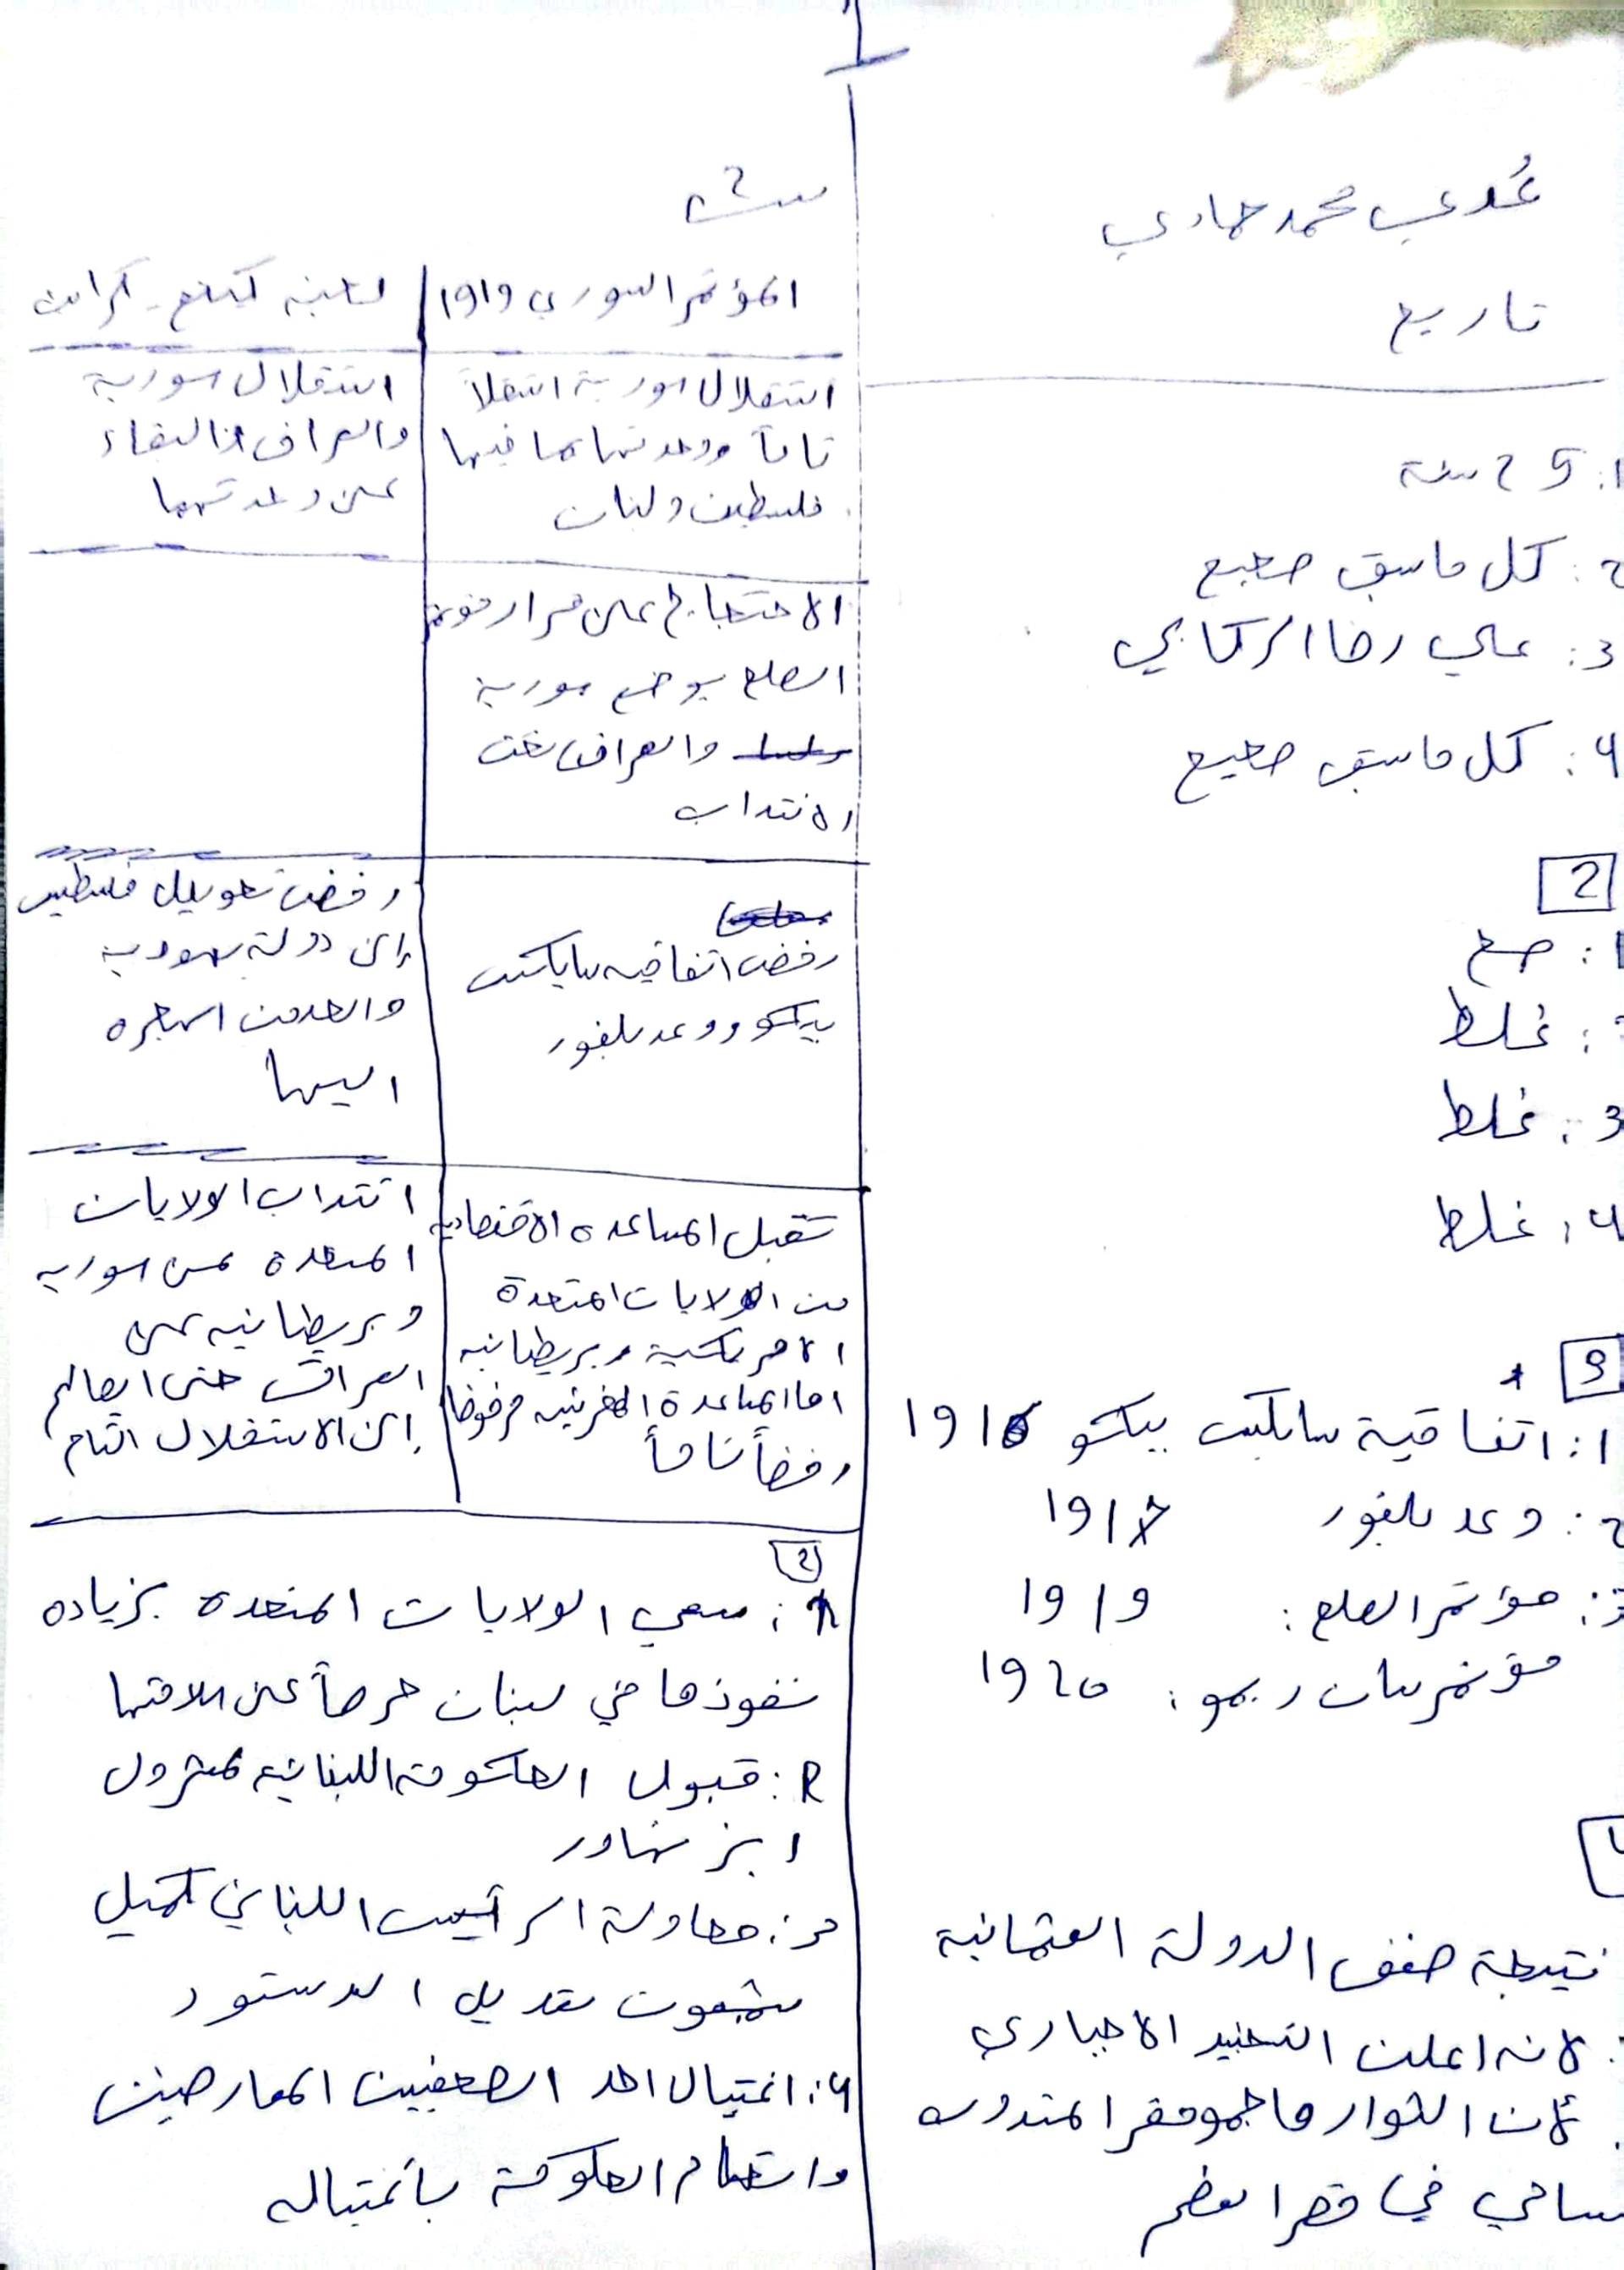 عُدي محمد حمادي
تاريخ
1: 25 سنة
2: كل ما سبق صحيح
3: علي رضا الركابي
4: كل ما سبق صحيح
2
1: صح
: غلط
3: غلط
4: غلط
3
1: اتفاقية سايكس بيكو 1916
2: وعد بلفور 1917
3: مؤتمر الصلح: 1919
مؤتمر سان ريمو: 1920
نتيجة ضعف الدولة العثمانية
: لانه اعلن التجنيد الاجباري
لأن الثوار هاجمو مقر المندوب
سامي في قصر العضم
المؤتمر السوري 1919 | لجنة كينغ - كراين
استقلال سورية استقلاً | استقلال سورية
تاماً ووحدتها بما فيها | والعراق والبقاء
فلسطين ولبنان | على وحدتهما
الاحتجاج على قرار مؤتمر
الصلح بوضع سورية
والعراق تحت
الانتداب
رفض اتفاقيه سايكس | رفض تحويل فلسطين
بيكو ووعد بلفور | إلى دولة يهودية
والحد من الهجره
اليها
تقبل المساعدة الاقتصادية | انتداب الولايات
من الولايات المتحدة | المتحدة على سوريه
الامريكية وبريطانيه | وبريطانيه على
اما المساعدة الفرنسيه مرفوضا | العراق حتى ايصالهم
رفضاً تاماً | إلى الاستقلال التام
2
1: سعي الولايات المتحدة بزياده
نفوذها في لبنان حرصاً على سلامتها
2: قبول الحكومة اللبنانيه لمشرول
ايزنهاور
3: محاولة الرئيس اللبناني كميل
شمعون تعديل الدستور
4: اغتيال احد الصحفيين المعارضين
واتهام الحكومة بأغتياله